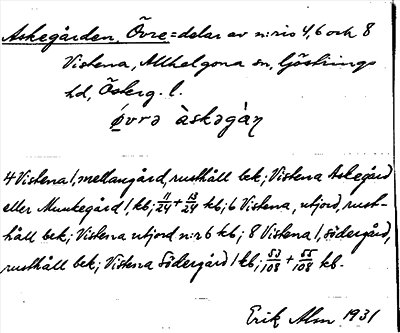 Askegården, Övre = delar av n:ris 4, 6 och 8
Vistena, Allhelgona sn, Göstrings
hd, Österg. l.
ǿvrə àskəgàɳ
4 Vistena 1, mellangård, rusthåll bek; Vistena Askegård
eller Munkegård 1, kb; 11/24 + 13/24 kb; 6 Vistena, utjord, rust-
håll bek; Vistena utjord n:r 6 kb; 8 Vistena 1, södergård,
rusthåll bek; Vistena Södergård 1 kb; 53/108 + 55/108 kb.
Erik Alm 1931